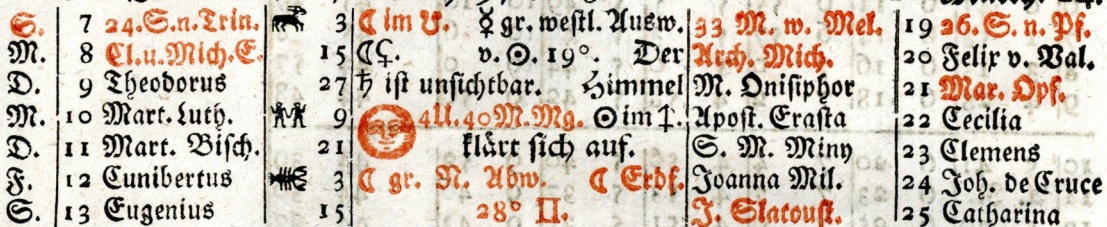 S. 7 24. S. n. Trin. 3 ☾ im ☋. ☿ gr. westl. Ausw. 33 M. w. Mel. 19 26. S. n. Pf.
M. 8 Cl. u. Mich. E. 15 ☾♀. v. ☉. 19°. Der Arch. Mich. 20 Felix v. Val.
D. 9 Theodorus 27 ♄ ist unsichtbar. Himmel M. Onisiphor 21 Mar. Opf.
M. 10 Mart. Luth. 9 4 U. 40 M. Mg. ☉ im ♐. Apost. Erasta 22 Cecilia
D. 11 Mart. Bisch. 21 klärt sich auf. S. M. Miny 23 Clemens
F. 12 Cunibertus 3 ☾ gr. N. Abw. ☾ Erdf. Joanna Mil. 24 Joh. de Cruce
S. 13 Eugenius 15 28° ♊. J. Slatoust. 25 Catharina